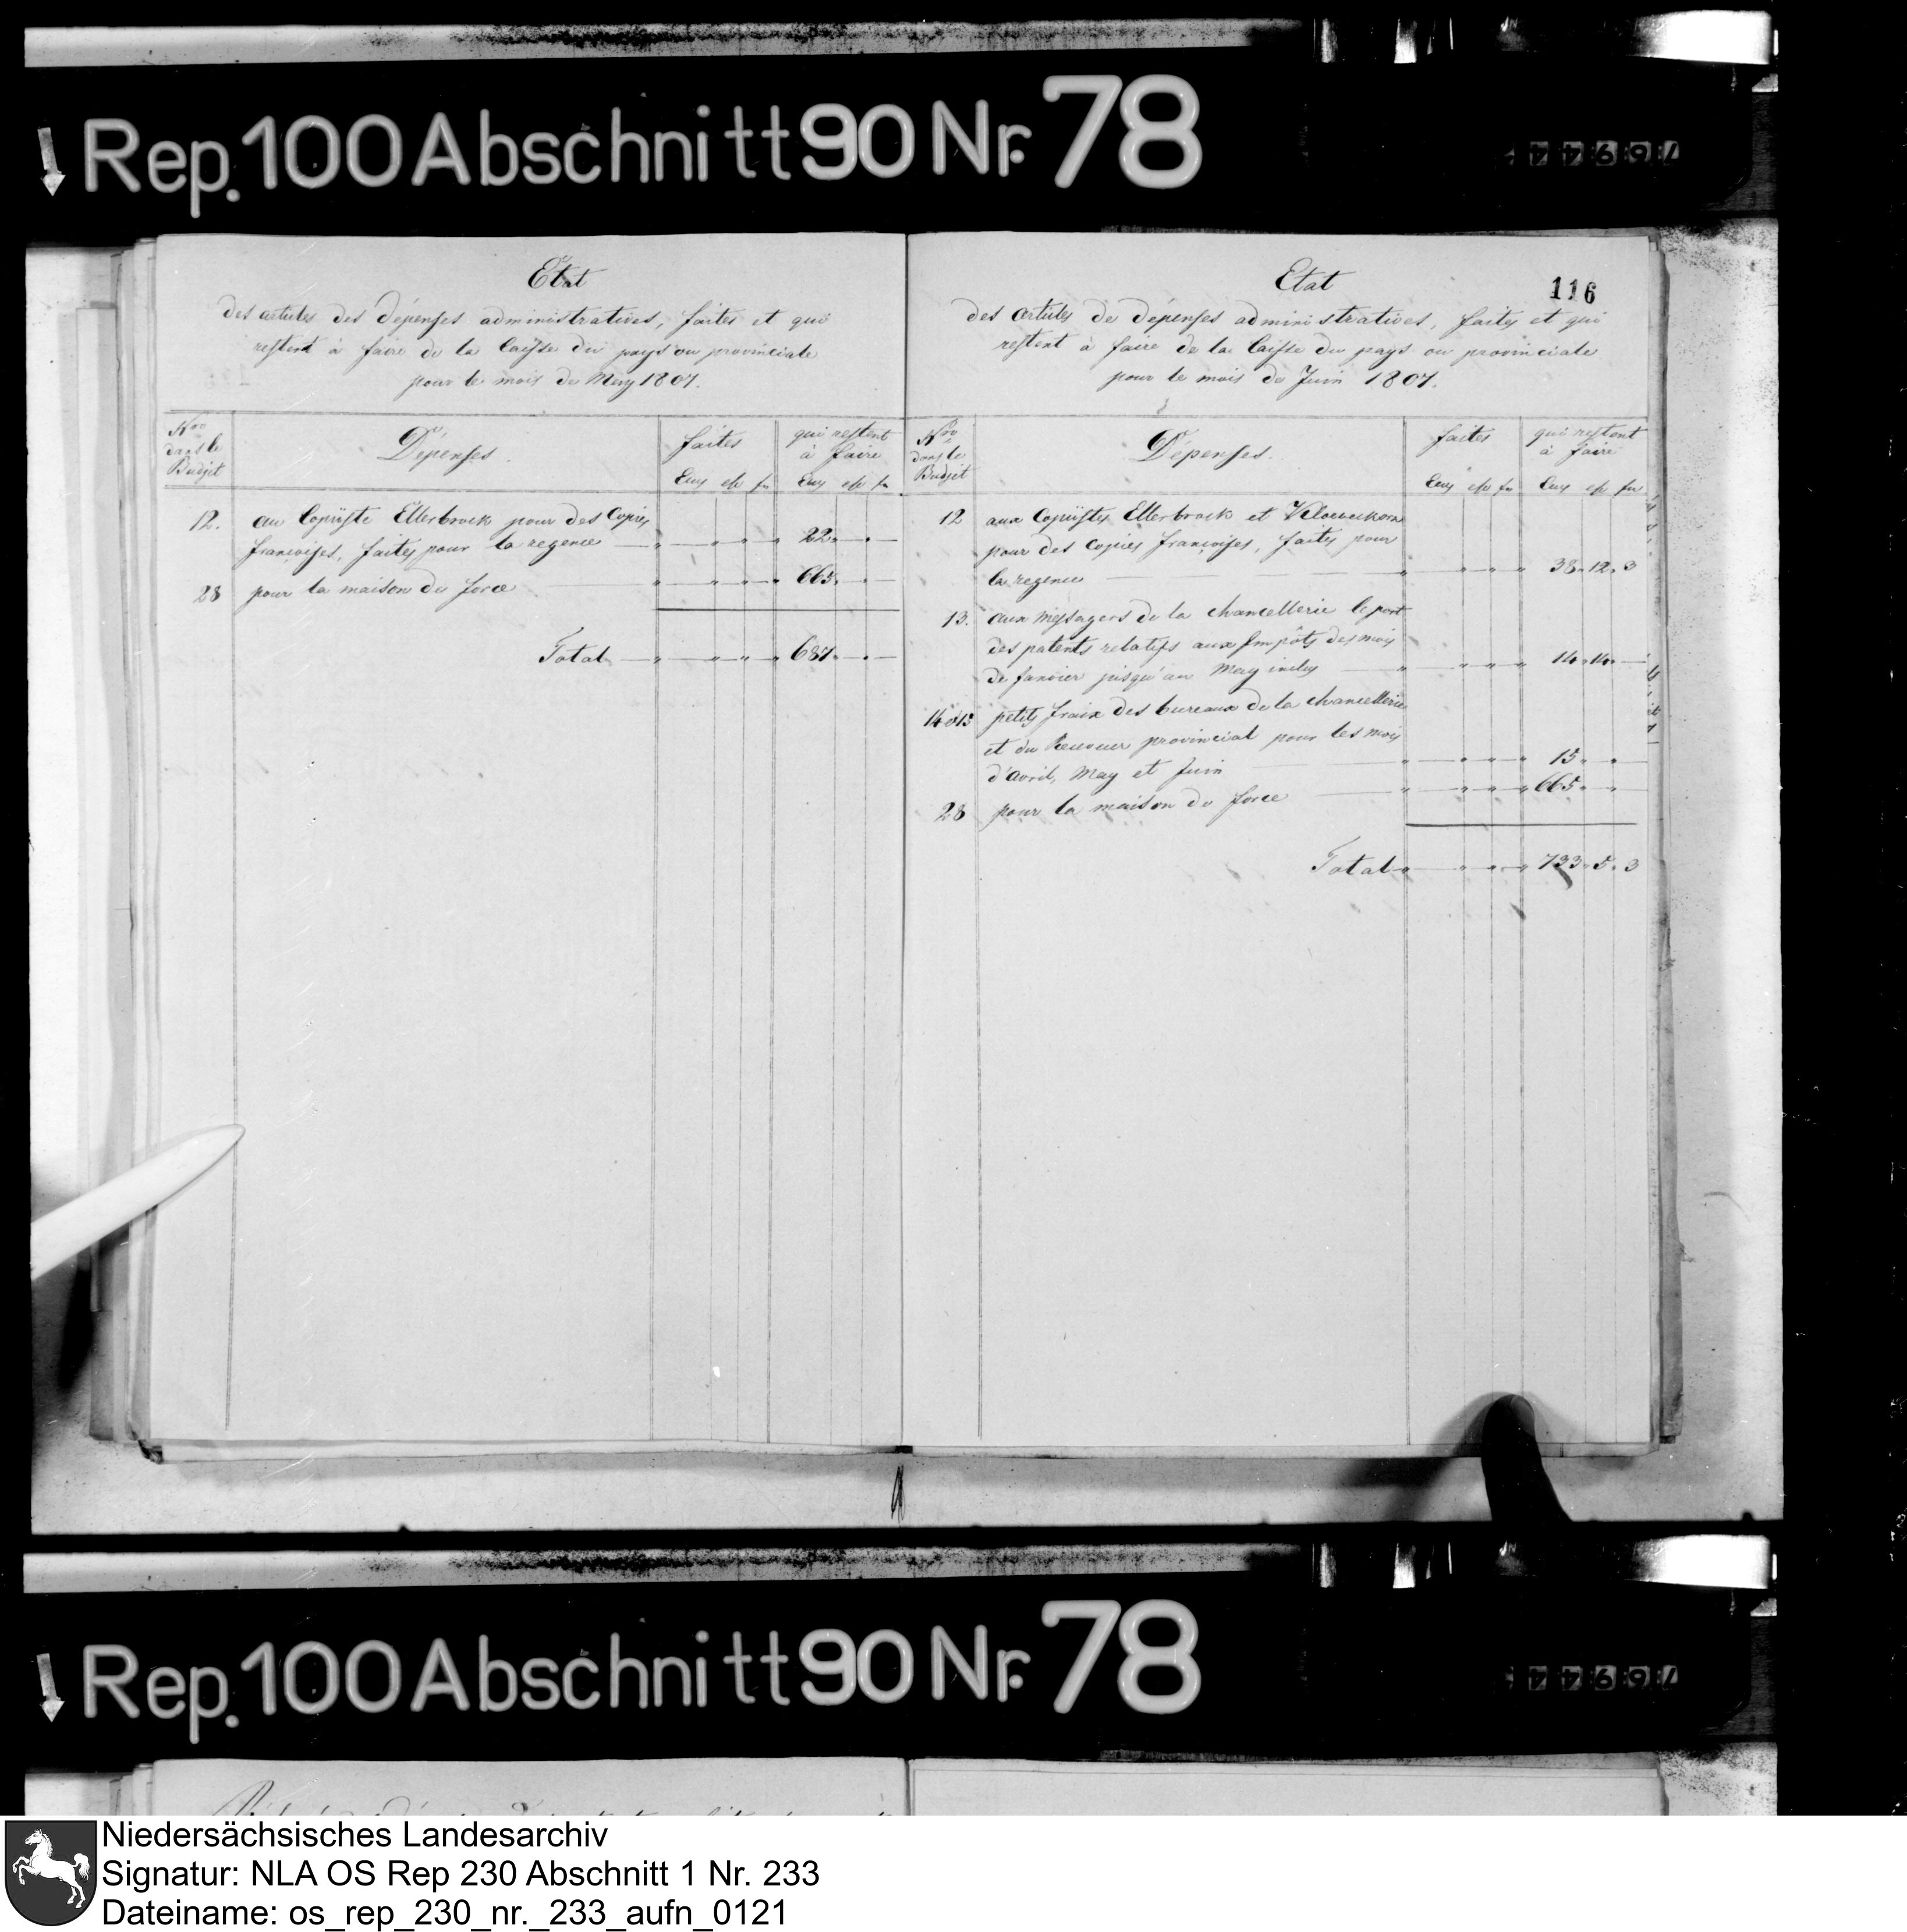 Rep. 100 Abschnitt 90 Nr. 78
Etat
des articles des Dépenses administratives, faites et qui
restent à faire de la Caisse du pays ou provinciale
pour le mois de May 1807.
Nro
dans le
Budjet
Dépenses.
faites
qui restent
à faire
12.
au Copiiste Ellerbrock pour des Copies
françoises, faites pour la regence
22
28
pour la maison de force
665
Total
687
Etat
116
des articles de dépenses administratives, faites et qui
restent à faire de la Caisse du pays ou provinciale
pour le mois de Juin 1807.
Nro
dans le
Budjet
Dépenses.
faites
qui restent
à faire
12
aux Copiistes Ellerbrock et
pour des copies françoises, faites pour
la regence
38 12 3
13.
aux Messagers de la chancellerie le port
des patents relatifs aux Impôts des mois
de Janvier jusqu'au May inclus
14 14
petits fraix des bureaux de la chancellerie
et du Receveur provincial pour les mois
d'avril, May et Juin
15
28
pour la maison de force
665
Total
733 5 3
Rep. 100 Abschnitt 90 Nr. 78
Niedersächsisches Landesarchiv
Signatur: NLA OS Rep 230 Abschnitt 1 Nr. 233
Dateiname: os_rep_230_nr._233_aufn_0121